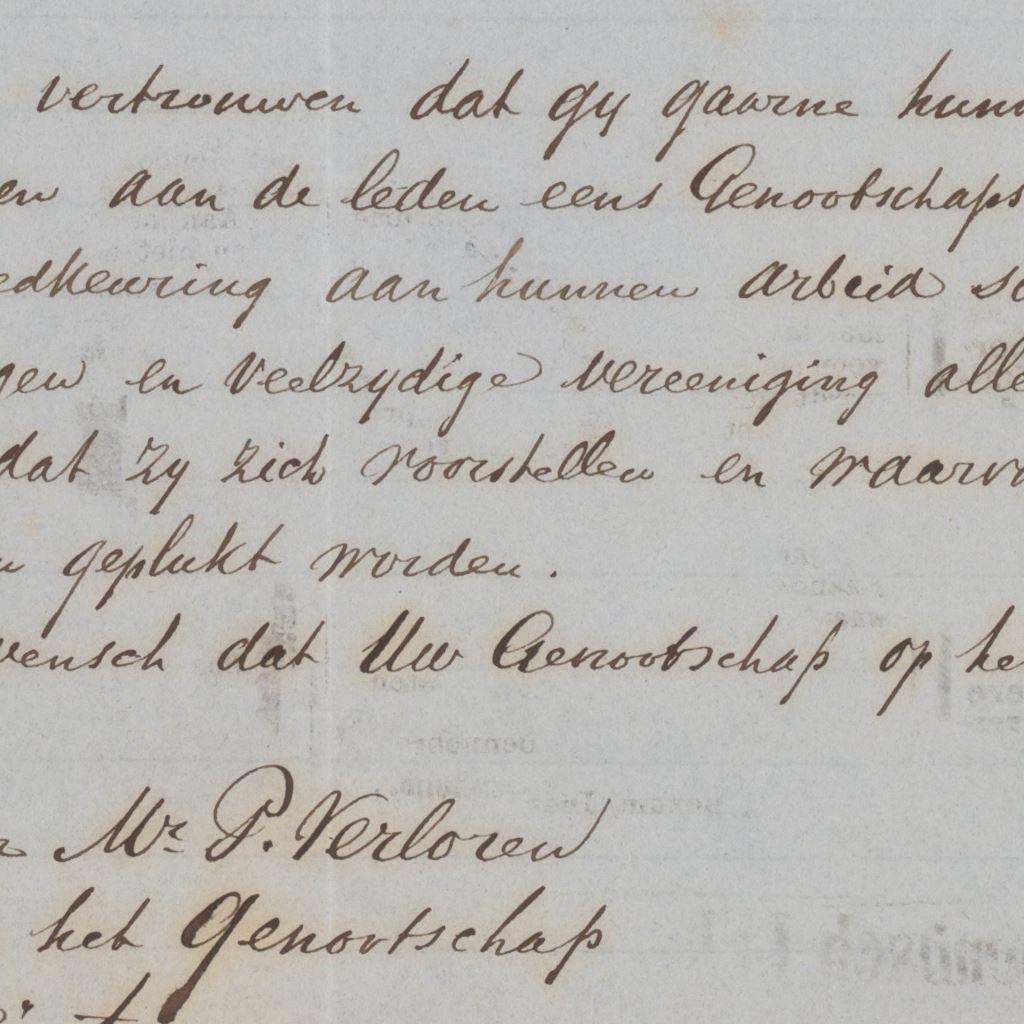 vertrouwen dat gy gaarne
en aan de leden eens Genootschaps
edkeuring aan hunnen arbeid
gen en veelzydige vereeniging alle
dat zy zich voorstellen en waarv
geplukt worden.
wensch dat Uw Genootschap op he
Mr P. Verloren
het Genootschap